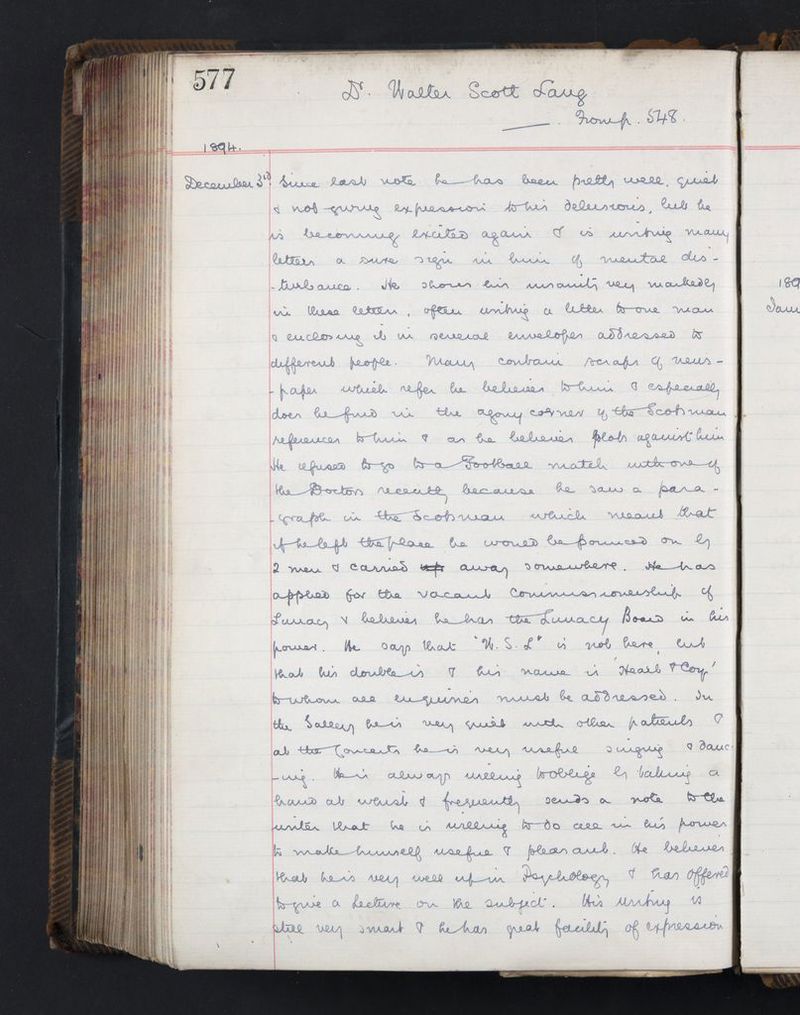 577
Dr. Walter Scott Lang
From p. 548.
1894.
December 3rd Since last note he has been pretty well, quiet
& not giving expression to his delusions, but he
is becoming excited again & is writing many
letters a sure sign in him of mental dis-
-turbance. He shows his insanity very markedly
in these letters, often writing a letter to one man
& enclosing it in several envelopes addressed to
different people. Many contain scraps of news-
-paper which refer he believes to him & especially
does he find in the agony corner of the Scotsman
references to him & as he believes plots against him
He refused to go to a Football match with one of
the Doctors recently because he saw a para-
-graph in the Scotsman which meant that
if he left the place he would be pounced on by
2 men & carried up away somewhere. He has
applied for the vacant Commissionership of
Lunacy & believes he has the Lunacy Board in his
power. He says that "W. S. L" is not here, but
that his double is & his name is 'Heart & Coy'
to whom all enquiries must be addressed. In
the Gallery he is very quiet with other patients &
at the Concerts he is very useful singing & danc-
-ing. He is always willing to oblige by taking a
hand at whist & frequently sends a note to the
writer that he is willing to do all in his power
to make himself useful & pleasant. He believes
that he is very well up in Psychology & has offered
to give a Lecture on the subject. His writing is
still very smart & he has great facility of expression
189
Janu